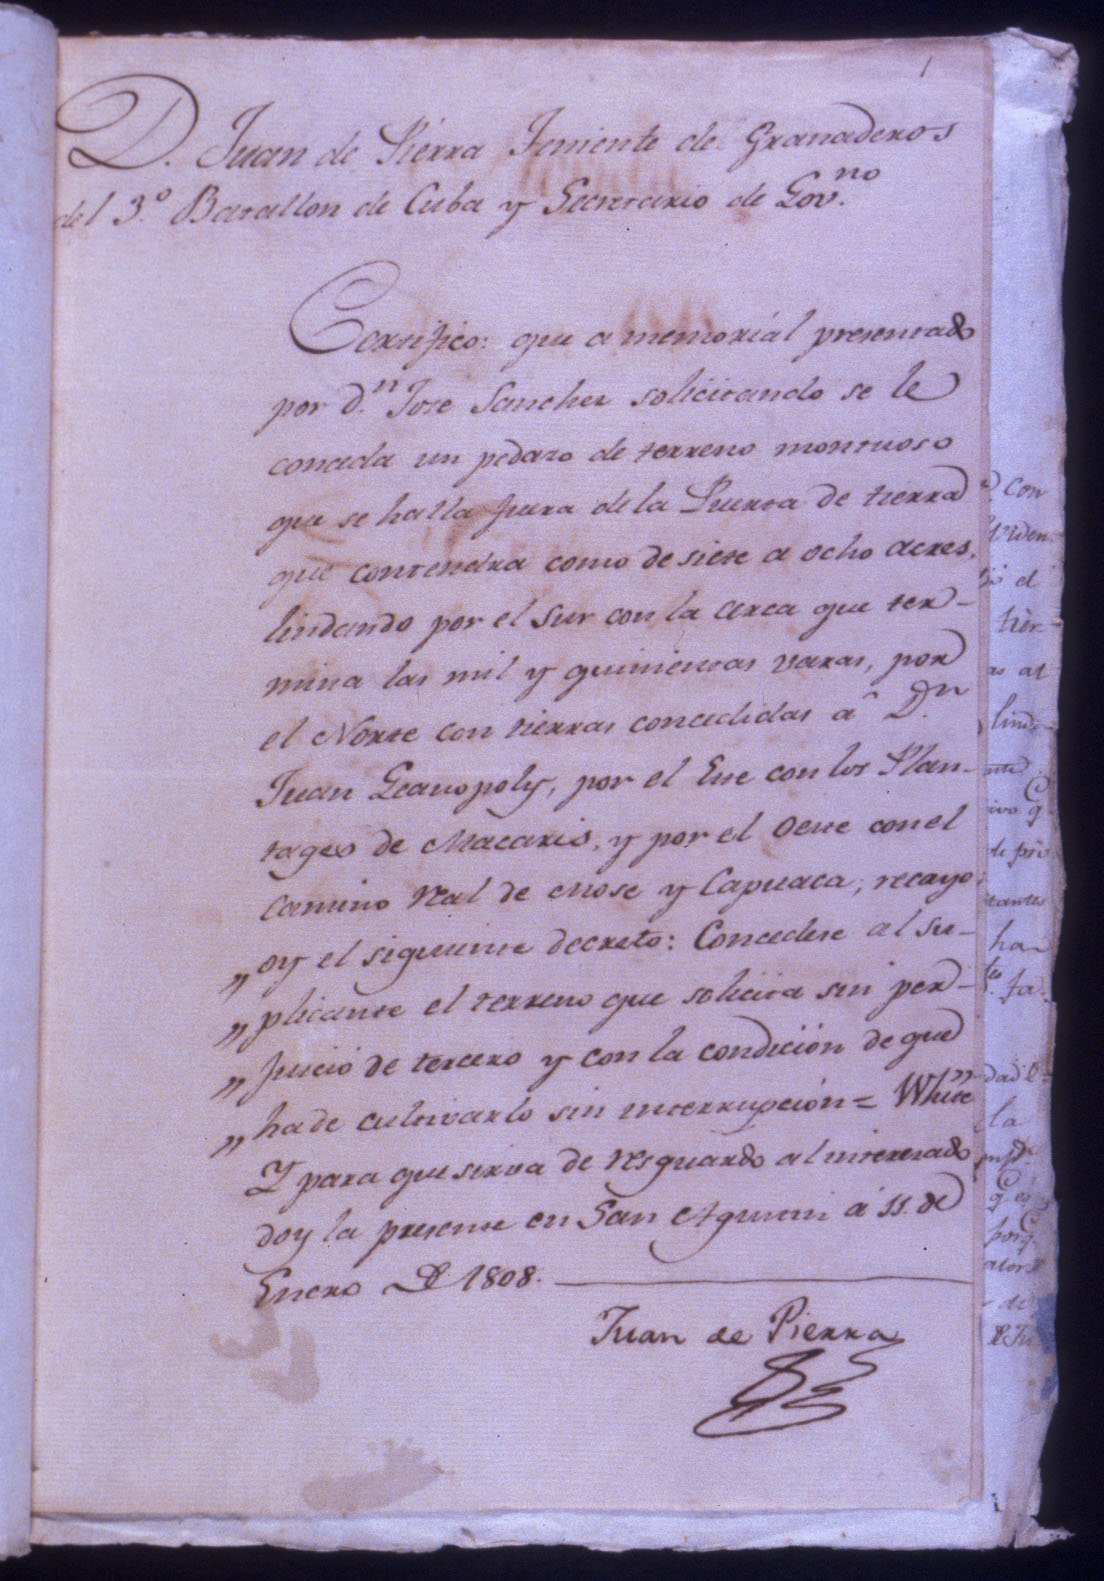 1
D. Juan de Pierra Teniente de Granaderos
del 3.º Batallon de Cuba y Secretario de Gov.no
Certifico: que a memorial presentado
por d.n Jose Sanchez solicitando se le
conceda un pedazo de terreno montuoso
que se halla fuera de la Puerta de tierra
que contendra como de siete a ocho acres,
lindando por el Sur con la cerca que ter-
mina las mil y quinientas varas, por
el Norte con tierras concedidas a D.n
Juan Geanopoly, por el Este con los Plan-
tages de Macaris, y por el Oeste con el
camino Real de Mose y Capuaca; recayo
„ oy el siguiente decreto: Concedese al Su-
„ plicante el terreno que solicita sin per-
„ juicio de tercero y con la condición de que
„ ha de cultivarlo sin interrupción = White
Y para que sirva de resguardo al interesado
doy la presente en San Agustin á 11. de
Enero De 1808.
Juan de Pierra
con
el
tier
as al
ha
la